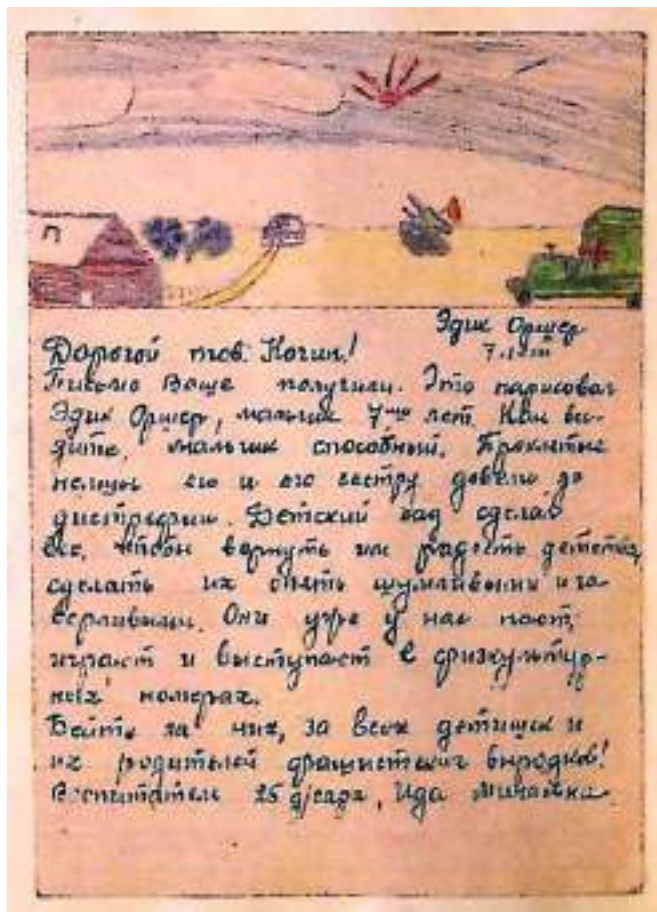 Эдик Оршер
7 лет
Дорогой тов. Когин!
Письмо Ваше получили. Это нарисовал
Эдик Оршер, мальчик 7-ми лет. Как ви-
дите, мальчик способный. Проклятые
немцы его и его сестру довели до
дистрофии. Детский сад сделал
все, чтобы вернуть им радость детства,
сделать их опять шумливыми и го-
ворливыми. Они уже у нас поют,
играют и выступают в физкультур-
ных номерах.
Бейте за них, за всех детишек и
их родителей фашистских выродков!
Воспитатель 25 д/сада, Ида